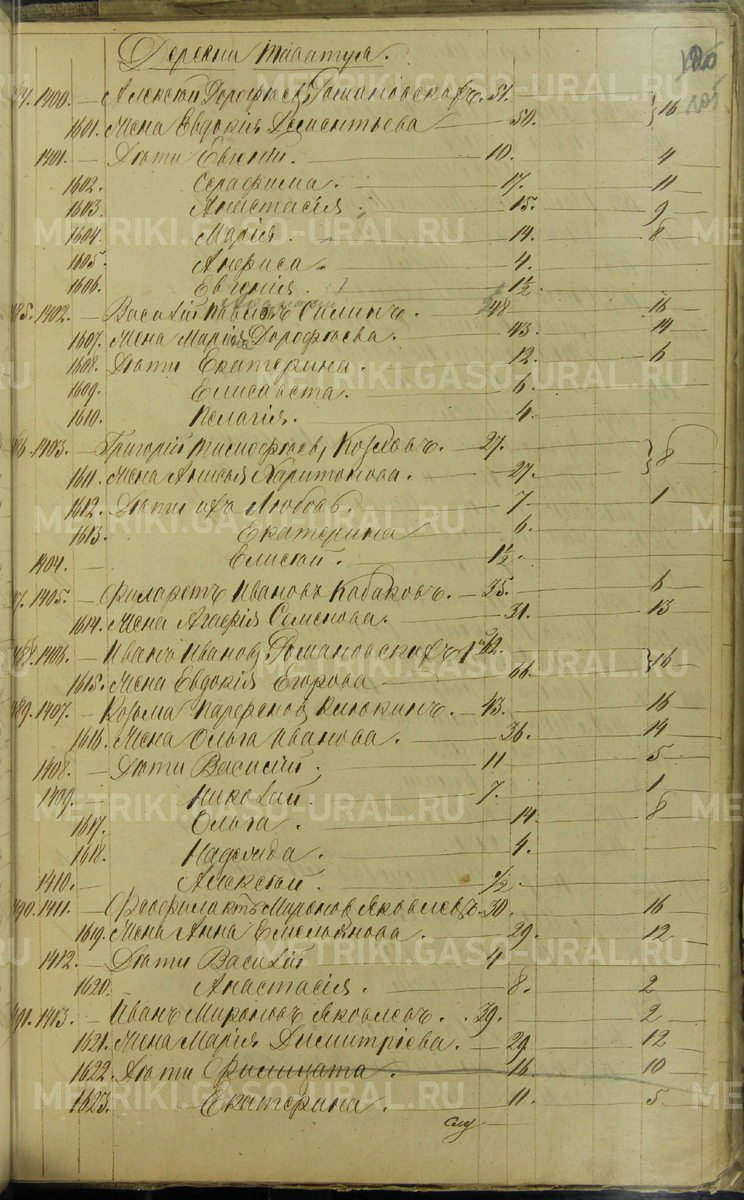 Деревни Таватуя.
120
105
1400. — Алексѣй Дорофѣевъ Романовскихъ. 51.
1601. Жена Евдокія Дементьева — 50. } 16
1401. — Дѣти Евгеній. — 10. — 4
1602. Серафима. — 17. — 11
1603. Анастасія. — 15. — 9
1604. Марія. — 14. — 8
1605. Анфиса. — 4.
1606. Евгенія. — 1½
1402. — Василій Силинъ. — 48 — 16
1607. Жена Марія Дорофѣева. — 43. — 14
1608. Дѣти Екатерина. — 12. — 6
1609. Елисавета. — 6.
1610. Пелагія. — 4.
1403. — Григорій Тимофѣевъ Козловъ. — 27.
1611. Жена Анисья Харитонова. — 27. } 8
1612. Дѣти ихъ Любовь. — 7 — 1
1613. Екатерина — 6.
1404. — Елисей. — 1½
1405. — Филаретъ Ивановъ Кабаковъ. — 35. — 6
1614. Жена Агафія Семенова. — 31. — 13
488. 1406. — Иванъ Ивановъ Романовскихъ
1615. Жена Евдокія Егорова — 66. } 16
489. 1407. — Козьма Парфеновъ — 43. — 16
1616. Жена Ольга Иванова. — 36. — 14
1408. — Дѣти Василій. — 11 — 5
1409. Николай. — 7. — 1
1617. Ольга. — 14. — 8
1618. Надежда. — 4.
1410. — Алексѣй. — ½
490. 1411. — Феофилактъ Мироновъ Яковлевъ. 30. — 16
1619. Жена Анна Емельянова. — 29. — 12
1412. — Дѣти Василій — 4
1620. Анастасія. — 8. — 2
491. 1413. — Иванъ Мироновъ Яковлевъ. — 39. — 2
1621. Жена Марія Димитріева. — 29 — 12
1622. Дѣти Филицата. — 16 — 10
1623. Екатерина. — 11. — 5
METRIKI.GASO-URAL.RU